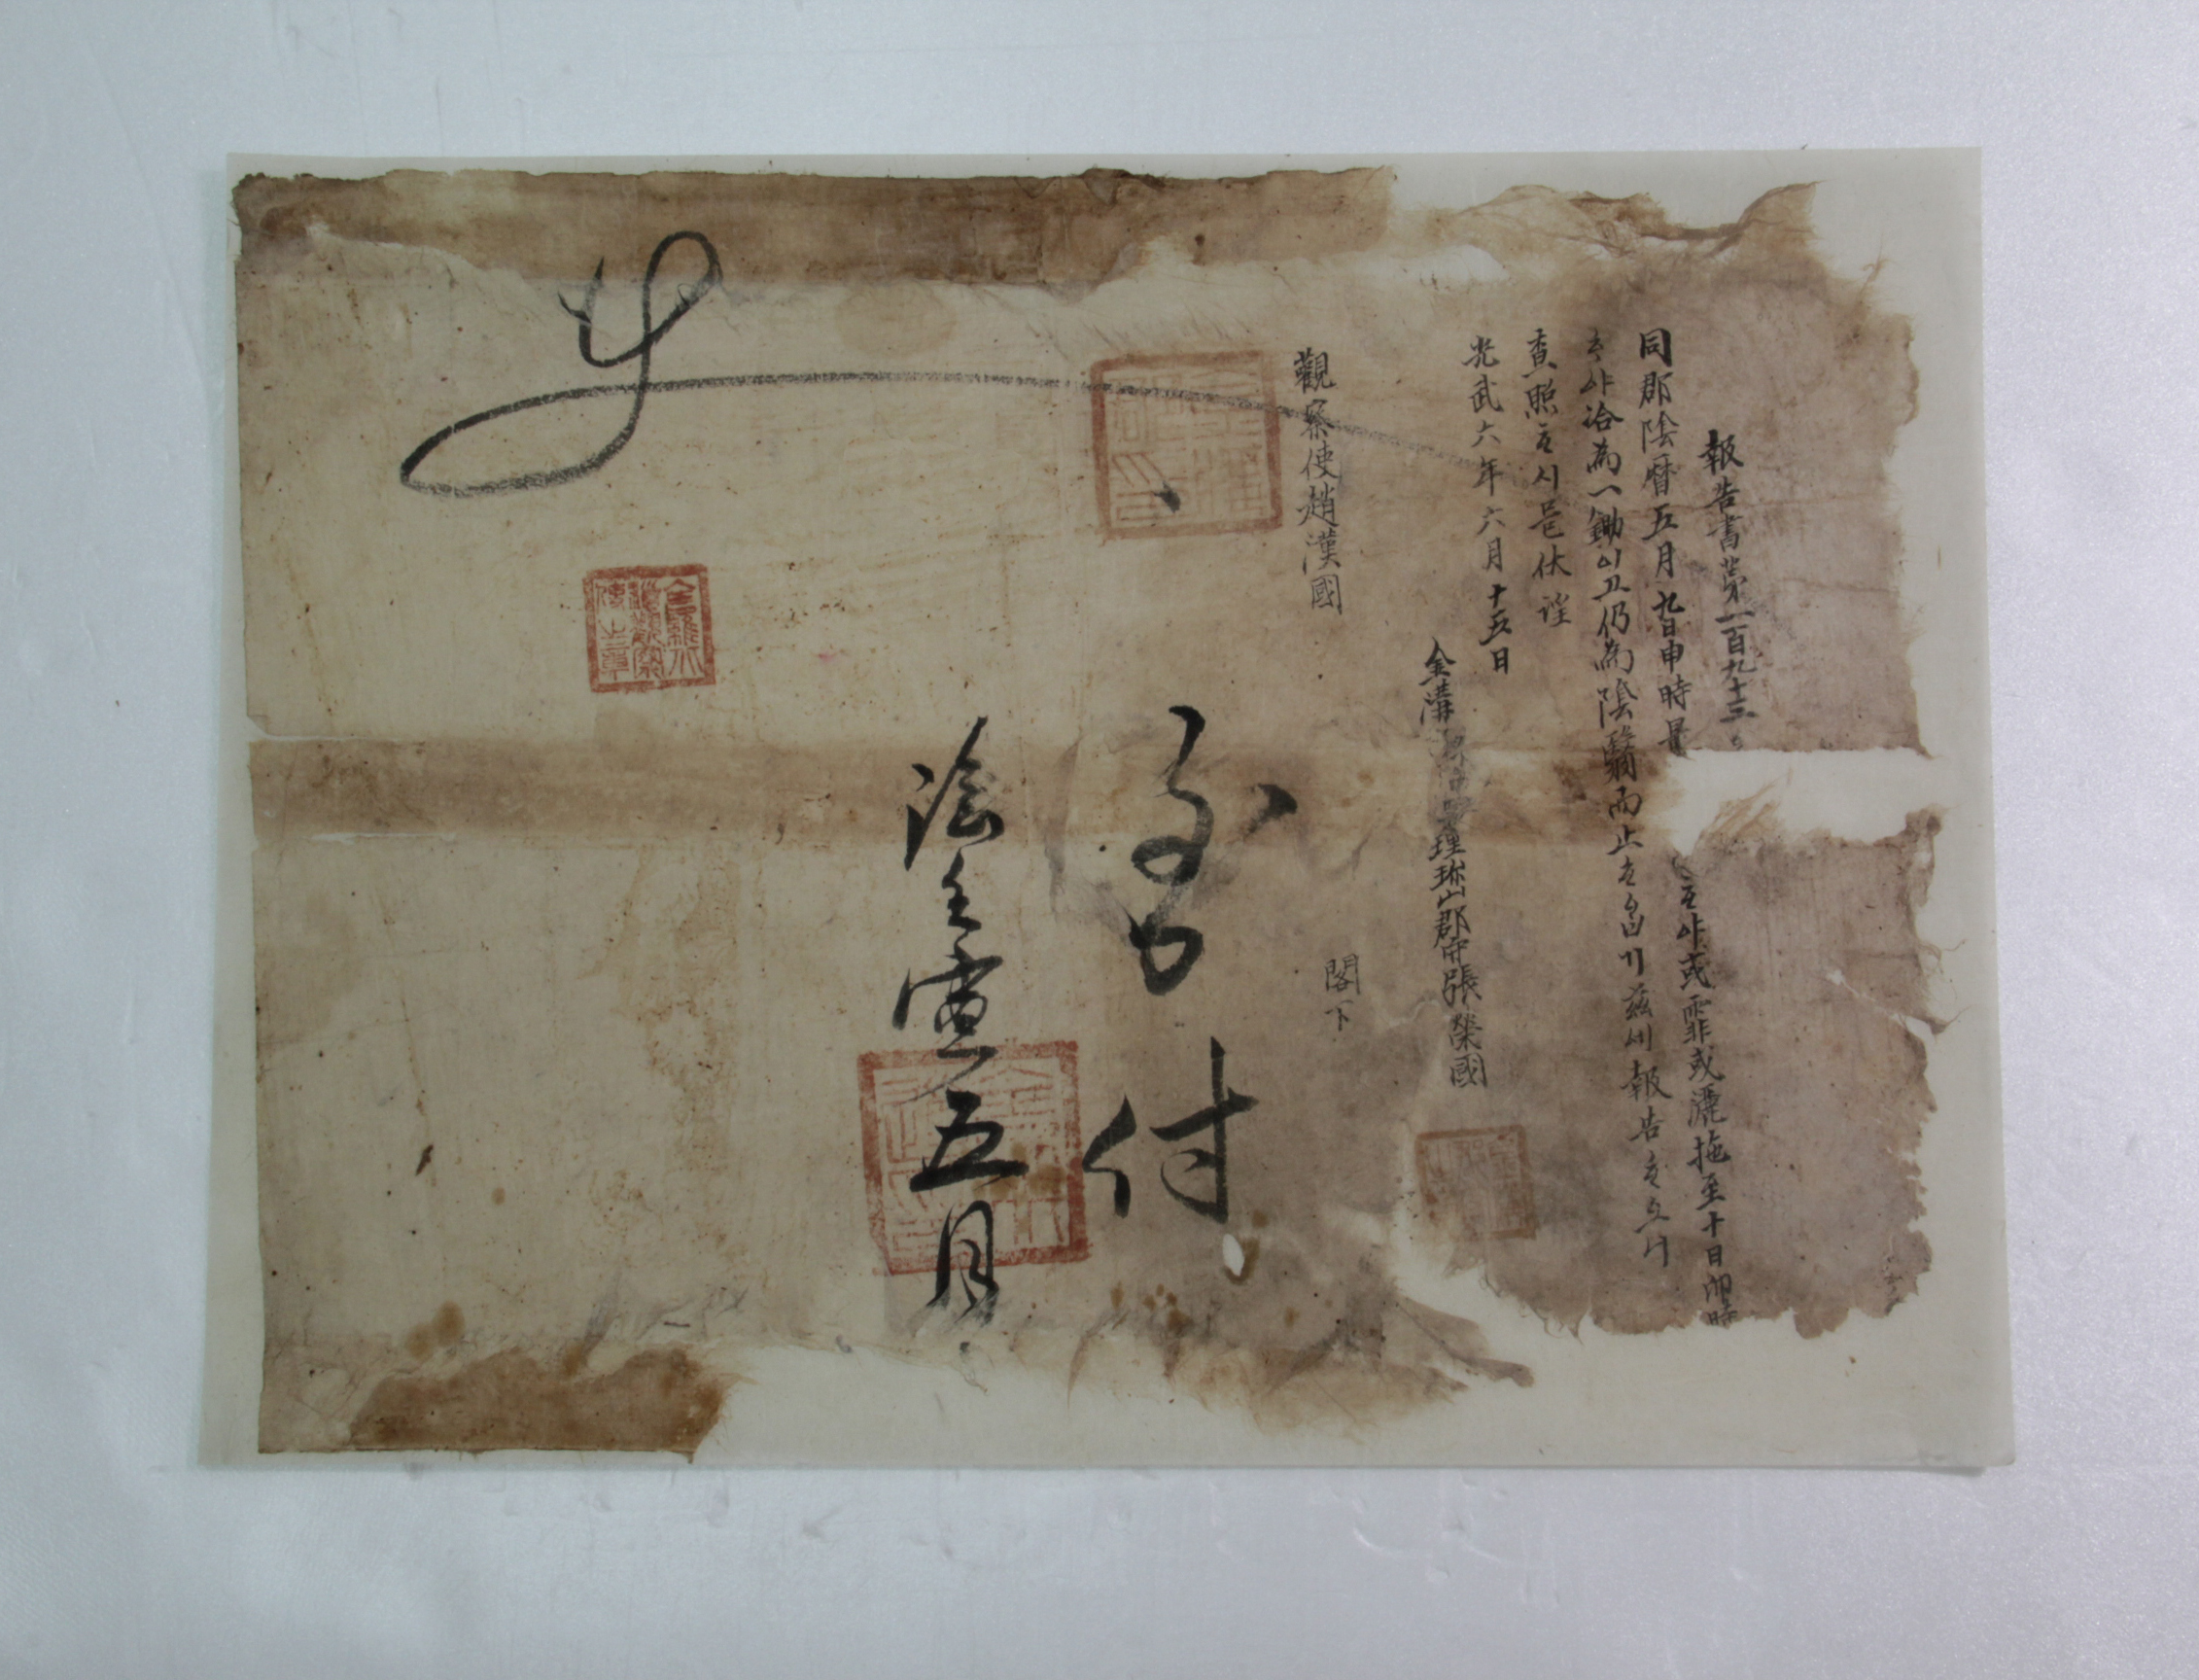 報告書第一百九十三
同郡陰曆五月九日申時量
ᄒᆞ야或霏或灑拖至十日卯時
ᄒᆞ야洽爲一鋤이고仍爲陰翳而止ᄒᆞ얏기玆에報告ᄒᆞ오니
査照ᄒᆞ시믈伏望
光武六年六月十五日
金溝
理珍山郡守張榮國
觀察使趙漢國
閣下
到付
陰壬寅五月